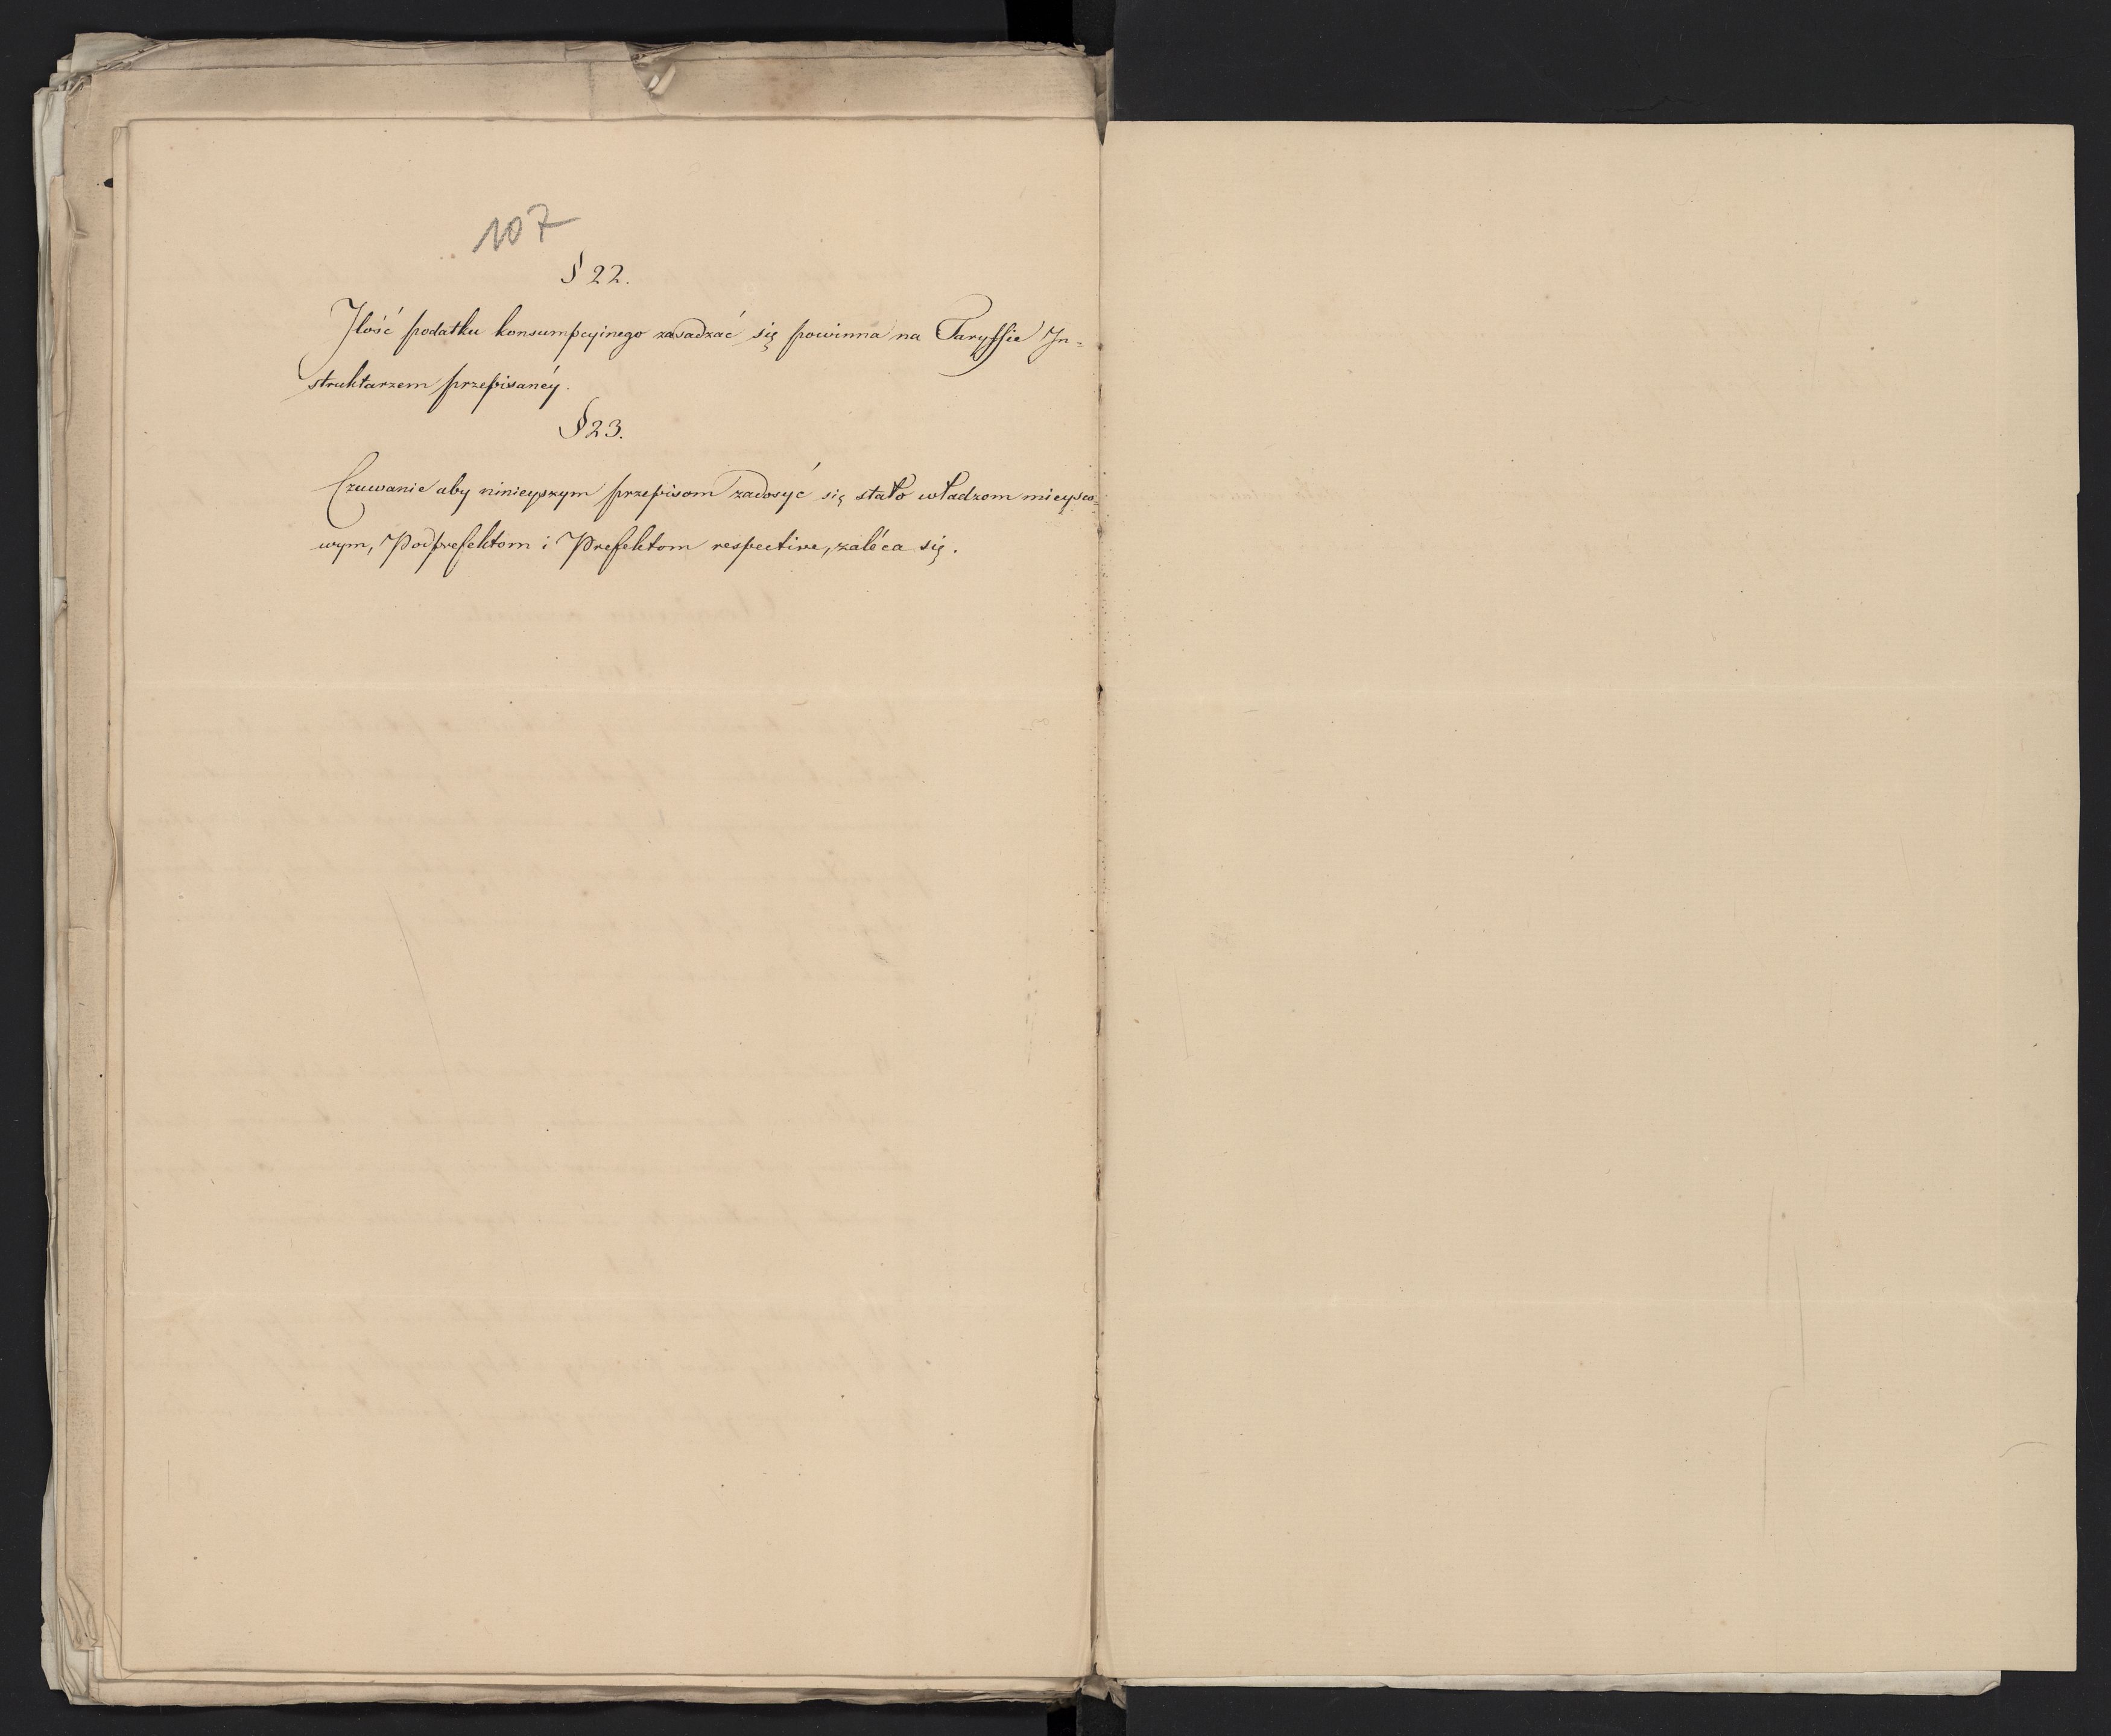 107
§ 22.
Ilość podatku konsumpcyinego zasadzać się powinna na Taryffie In=
struktarzem przepisanéy.
§ 23.
Czuwanie aby ninieyszym przepisom zadosyć się stało władzom mieysco=
wym, Podprefektom i Prefektom respective, zaléca się.